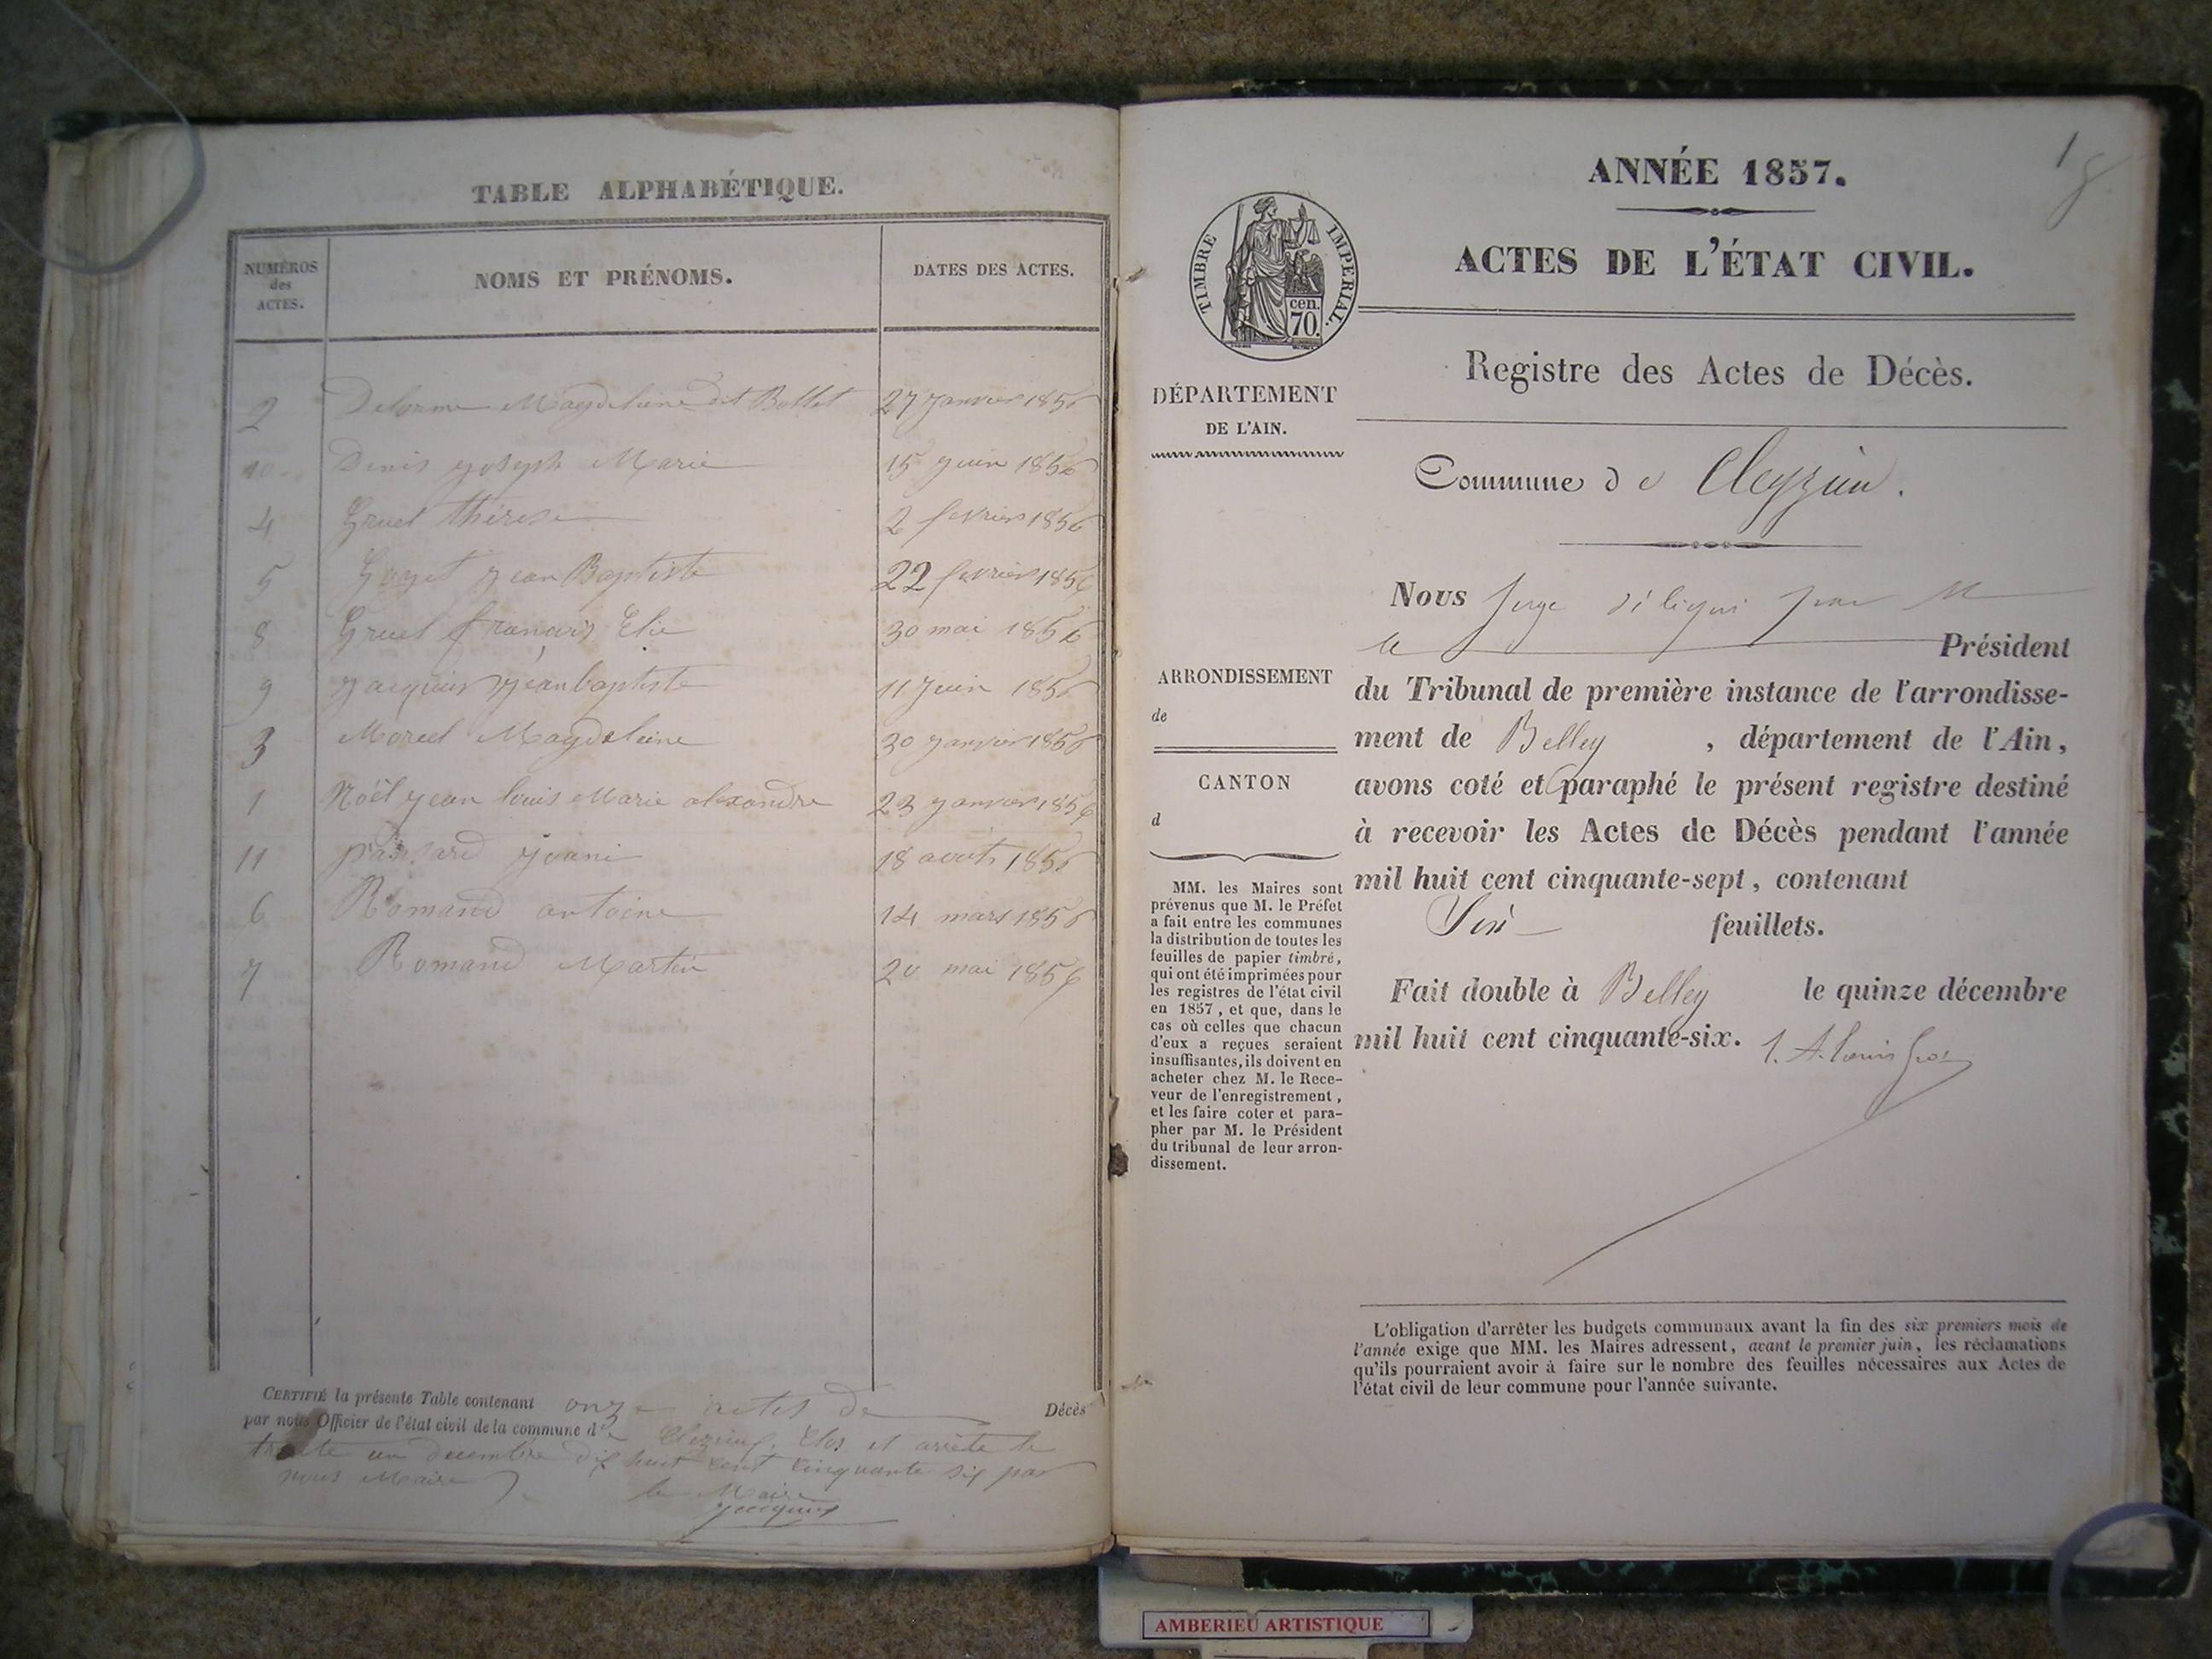 TABLE ALPHABÉTIQUE.
NUMÉROS
des
ACTES.
NOMS ET PRÉNOMS.
DATES DES ACTES.
2 Delorme Magdeleine dit Bollet 27 janvier 1856
10 Denis joseph Marie 15 juin 1856
4 Gruel thérese 2 fevrier 1856
5 Goyet jean Baptiste 22 fevrier 1856
8 Gruel françois Elie 30 mai 1856
9 jacquin jean baptiste 11 juin 1856
3 Morel Magdeleine 30 janvier 1856
1 Noël jean louis Marie alexandre 23 janvier 1856
11 18 août 1856
6 Romand antoine 14 mars 1856
7 Romand Martin 20 mai 1856
CERTIFIÉ la présente Table contenant onze actes de Décès
par nous Officier de l'état civil de la commune de Clos et arrêté le
trente un decembre dix huit cent cinquante six par
nous Maire
le Maire
ANNÉE 1857.
1
ACTES DE L'ÉTAT CIVIL.
TIMBRE IMPÉRIAL.
cen.
70.
Registre des Actes de Décès.
DÉPARTEMENT
DE L'AIN.
Commune de Cleyzieu.
ARRONDISSEMENT
de
CANTON
d
MM. les Maires sont
prévenus que M. le Préfet
a fait entre les communes
la distribution de toutes les
feuilles de papier timbré,
qui ont été imprimées pour
les registres de l'état civil
en 1857, et que, dans le
cas où celles que chacun
d'eux a reçues seraient
insuffisantes, ils doivent en
acheter chez M. le Rece-
veur de l'enregistrement,
et les faire coter et para-
pher par M. le Président
du tribunal de leur arron-
dissement.
Nous juge délégué par M
le Président
du Tribunal de première instance de l'arrondisse-
ment de Belley , département de l'Ain,
avons coté et paraphé le présent registre destiné
à recevoir les Actes de Décès pendant l'année
mil huit cent cinquante-sept, contenant
Six feuillets.
Fait double à Belley le quinze décembre
mil huit cent cinquante-six.
L'obligation d'arrêter les budgets communaux avant la fin des six premiers mois de
l'année exige que MM. les Maires adressent, avant le premier juin, les réclamations
qu'ils pourraient avoir à faire sur le nombre des feuilles nécessaires aux Actes de
l'état civil de leur commune pour l'année suivante.
AMBERIEU ARTISTIQUE